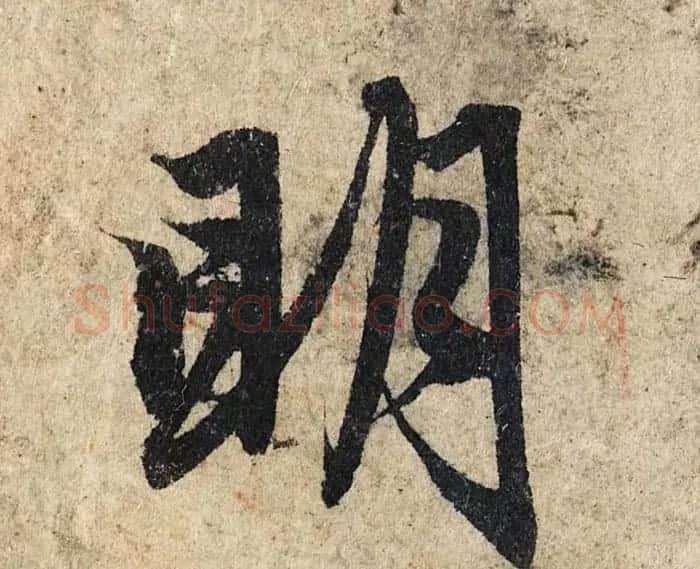 明
Shufaziliao.COM